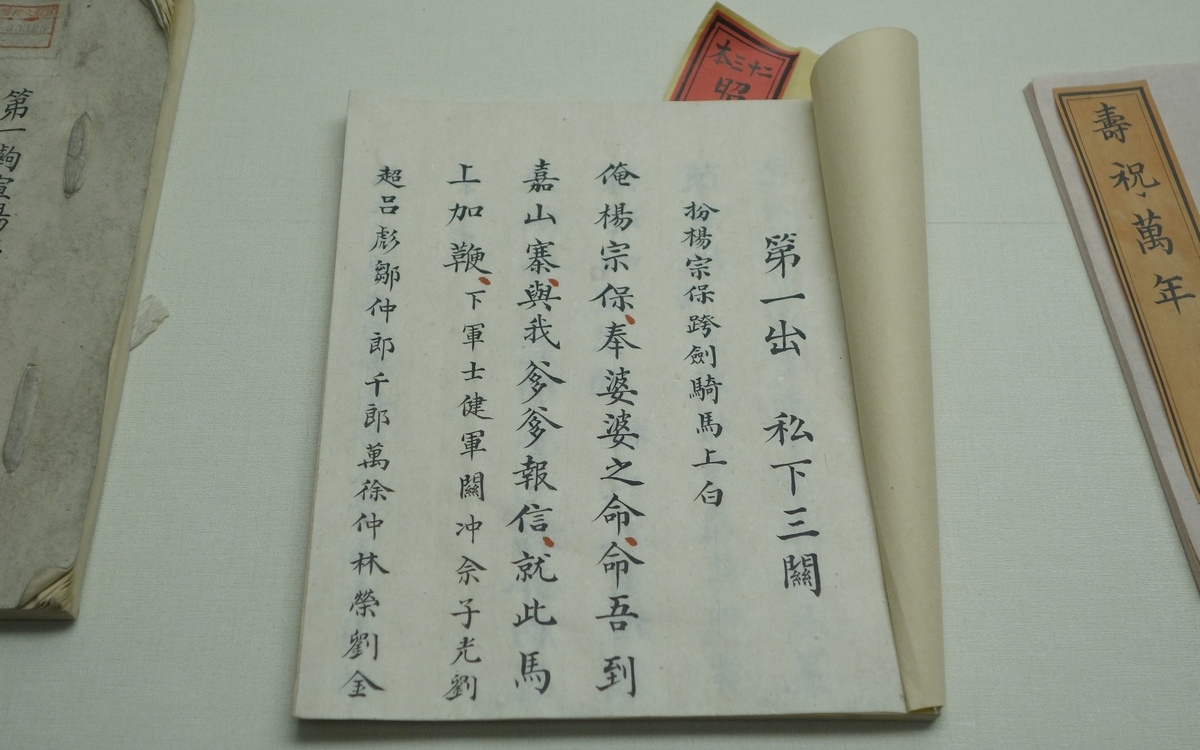 壽祝萬年
二十三本
昭
第一出 私下三關
扮楊宗保跨劍騎馬上白
俺楊宗保奉婆婆之命命吾到
嘉山寨與我爹爹報信就此馬
上加鞭下軍士健軍關冲佘子光劉
超呂彪鄒仲郎千郎萬徐仲林榮劉金
第一齣宣揚